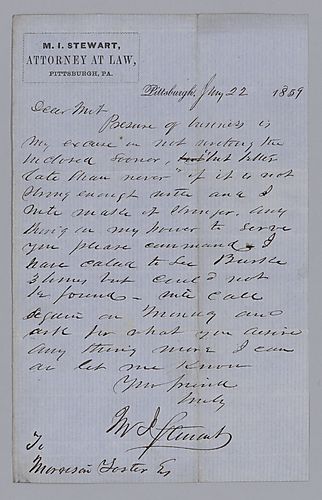 M. I. STEWART,
ATTORNEY AT LAW,
PITTSBURGH, PA.
Pittsburgh, 22 1859
Dear Mit
Presure of business is
my excuse in not writing the
inclosed sooner, "but better
late than never" if it is not
strong enough write and I
will make it stronger. Any
thing in my power to serve
you please command. I
have called to see Burke
3 times but could not
be found - will call
again on Monday and
ask for what you desire
Any thing more I can
do let me know
Your friend
truly
M I Stewart
To
Morrison Foster Es